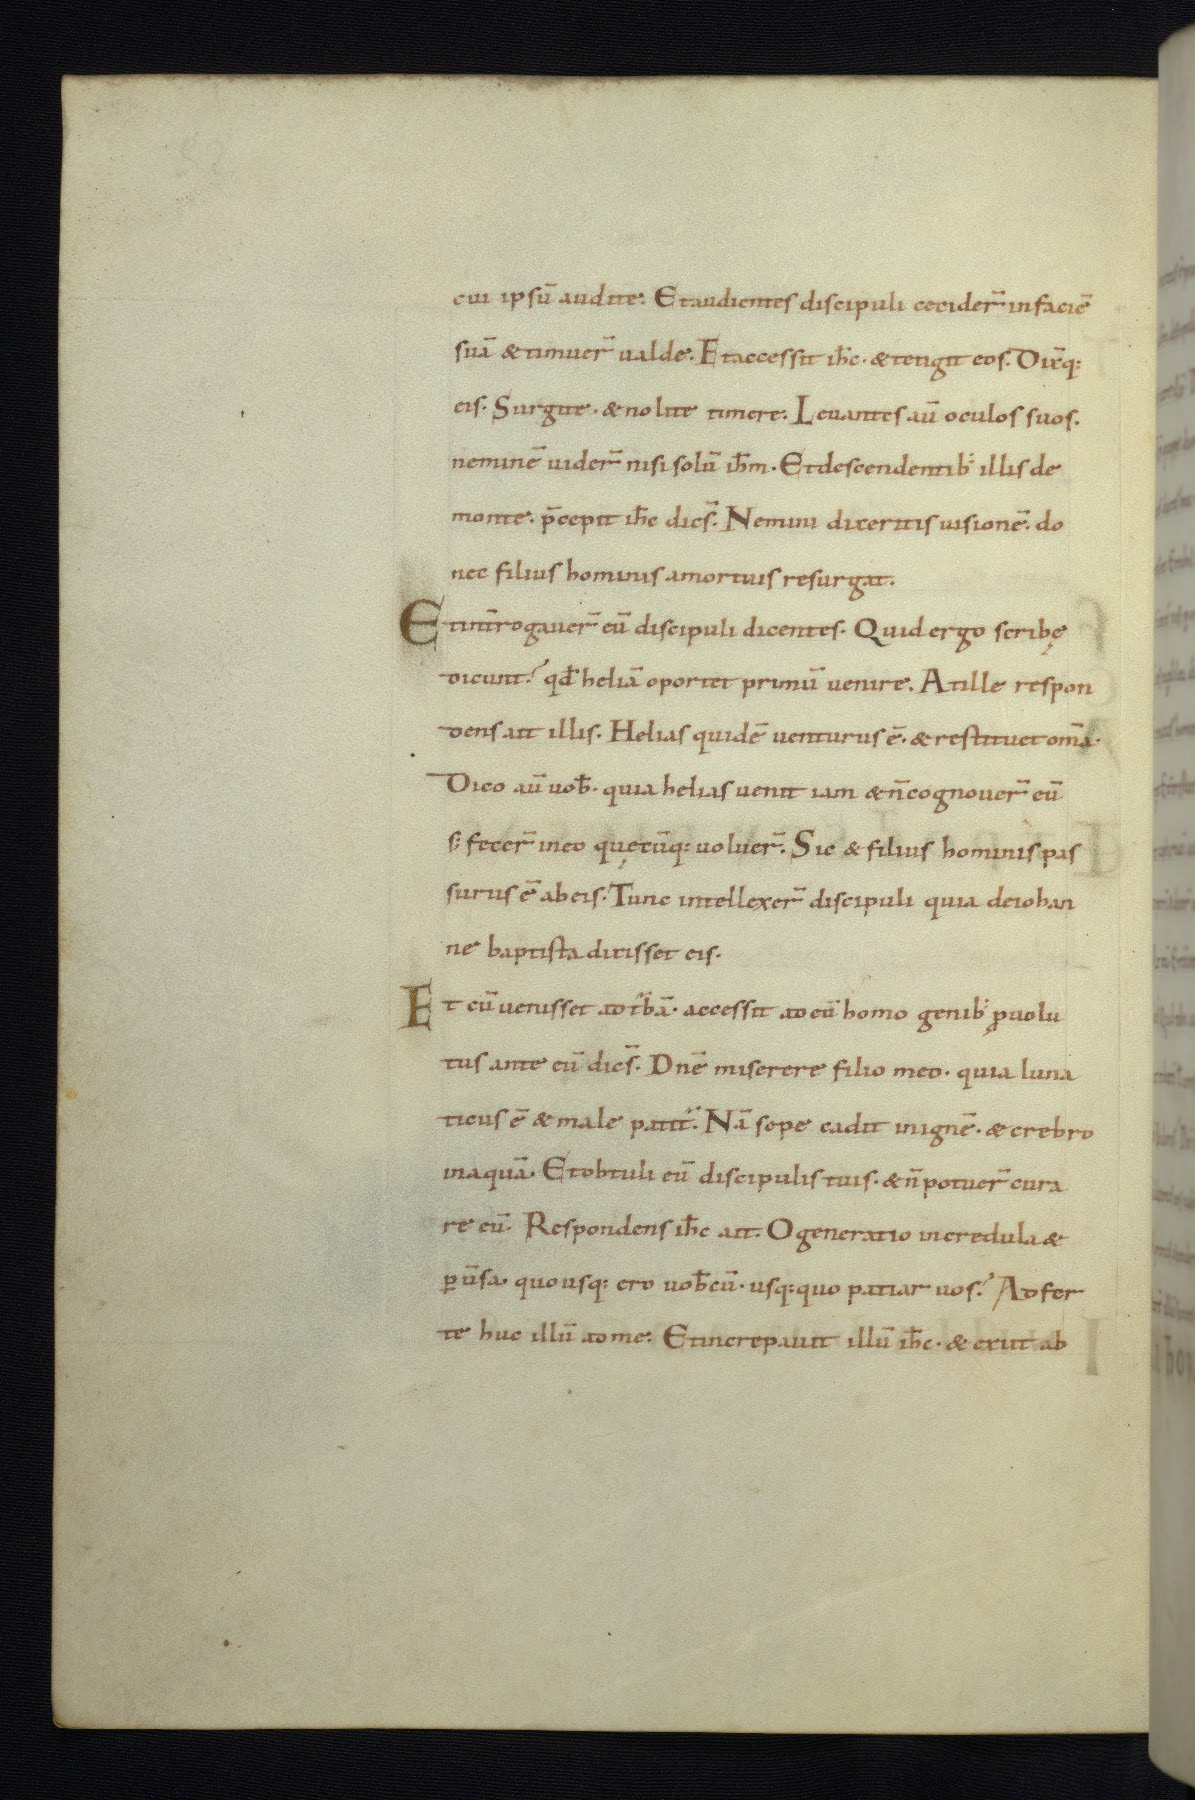 cui ipsū audite. Et audientes discipuli ceciderr̄ in faciē
suā & timuer̄ ualde. Et accessit ih̄c. & tetigit eos. Dix̄q;
eis. Surgite. & nolite timere. Leuantes aū oculos suos.
neminē uider̄ nisi solū ih̄m. Et descendentib; illis de
monte. p̄cepit ih̄c dicēs. Nemini dixeritis uisionē. do
nec filius hominis a mortuis resurgat.
Et int̄rogauer̄ eū discipuli dicentes. Quid ergo scribę
dicunt? qđ heliā oportet primū uenire. At ille respon
dens ait illis. Helias quidē uenturus ē. & restituet om̄a.
Dico aū uob̄. quia helias uenit iam & n̄ cognouer̄ eū
s; fecer̄ in eo quęcūq; uoluer̄. Sic & filius hominis pas
surus ē ab eis. Tunc intellexer̄ discipuli quia de iohan
ne baptista dixisset eis.
Et cū uenisset ad t̄bā. accessit ad eū homo genib; ꝓuolu
tus ante eū dicēs. Dn̄e miserere filio meo. quia luna
ticus ē & male patit̄. Nā sepe cadit in ignē. & crebro
in aquā. Et obtuli eū discipulis tuis. & n̄ potuer̄ cura
re eū. Respondens ih̄c ait. O generatio incredula &
ꝑuersa. quousq; ero uob̄cū. usq;quo patiar uos? Adfer
te huc illū ad me. Et increpauit illū ih̄c. & exiit ab